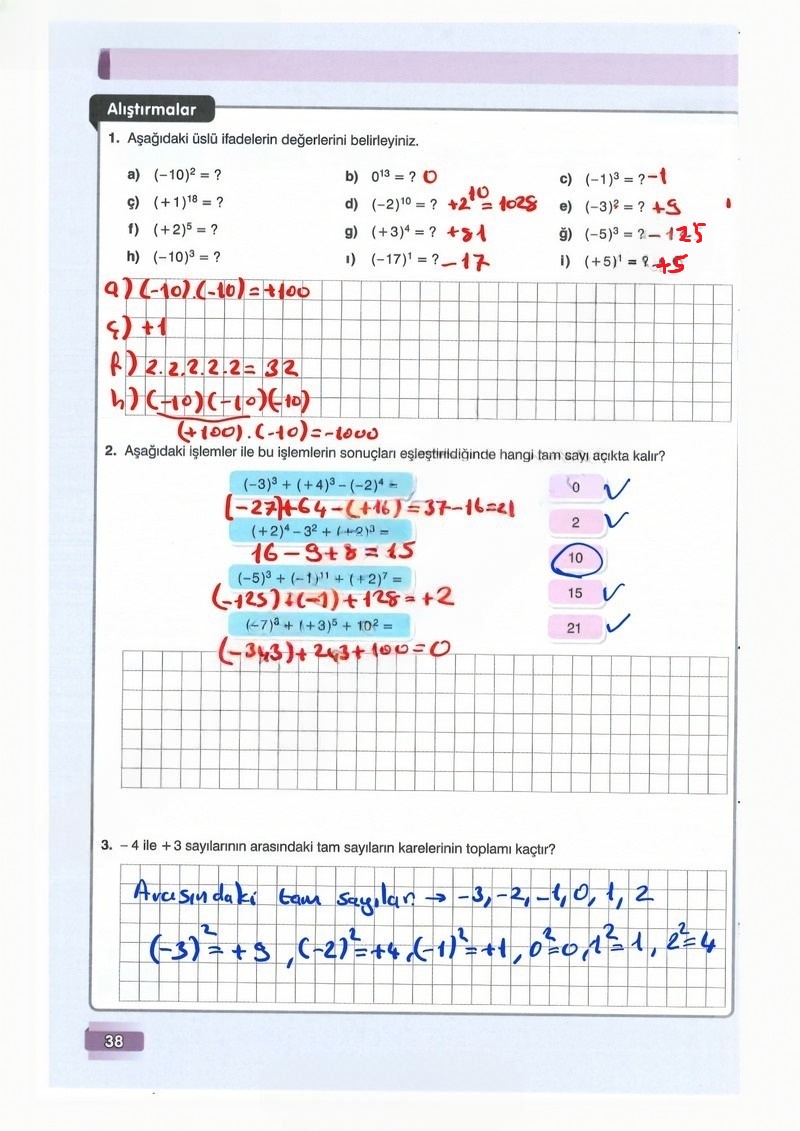 Alıştırmalar
1. Aşağıdaki üslü ifadelerin değerlerini belirleyiniz.
a) (−10)² = ? b) 0¹³ = ? 0 c) (−1)³ = ? −1
ç) (+1)¹⁸ = ? d) (−2)¹⁰ = ? +2¹⁰ = 1028 e) (−3)² = ? +9
f) (+2)⁵ = ? g) (+3)⁴ = ? +81 ğ) (−5)³ = ? −125
h) (−10)³ = ? ı) (−17)¹ = ? −17 i) (+5)¹ = ? +5
a) (−10).(−10) = +100
ç) +1
f) 2.2.2.2.2 = 32
h) (−10)(−10)(−10)
(+100).(−10) = −1000
2. Aşağıdaki işlemler ile bu işlemlerin sonuçları eşleştirildiğinde hangi tam sayı açıkta kalır?
(−3)³ + (+4)³ − (−2)⁴ = 0 ✓
(−27)+64 − (+16) = 37 − 16 = 21
(+2)⁴ − 3² + (+2)³ = 2 ✓
16 − 9 + 8 = 15
10
(−5)³ + (−1)¹¹ + (+2)⁷ = 15 ✓
(−125) + (−1) + 128 = +2
(−7)³ + (+3)⁵ + 10² = 21 ✓
(−343) + 243 + 100 = 0
3. − 4 ile + 3 sayılarının arasındaki tam sayıların karelerinin toplamı kaçtır?
Arasındaki tam sayılar → −3, −2, −1, 0, 1, 2
(−3)² = +9, (−2)² = +4, (−1)² = +1, 0² = 0, 1² = 1, 2² = 4
38